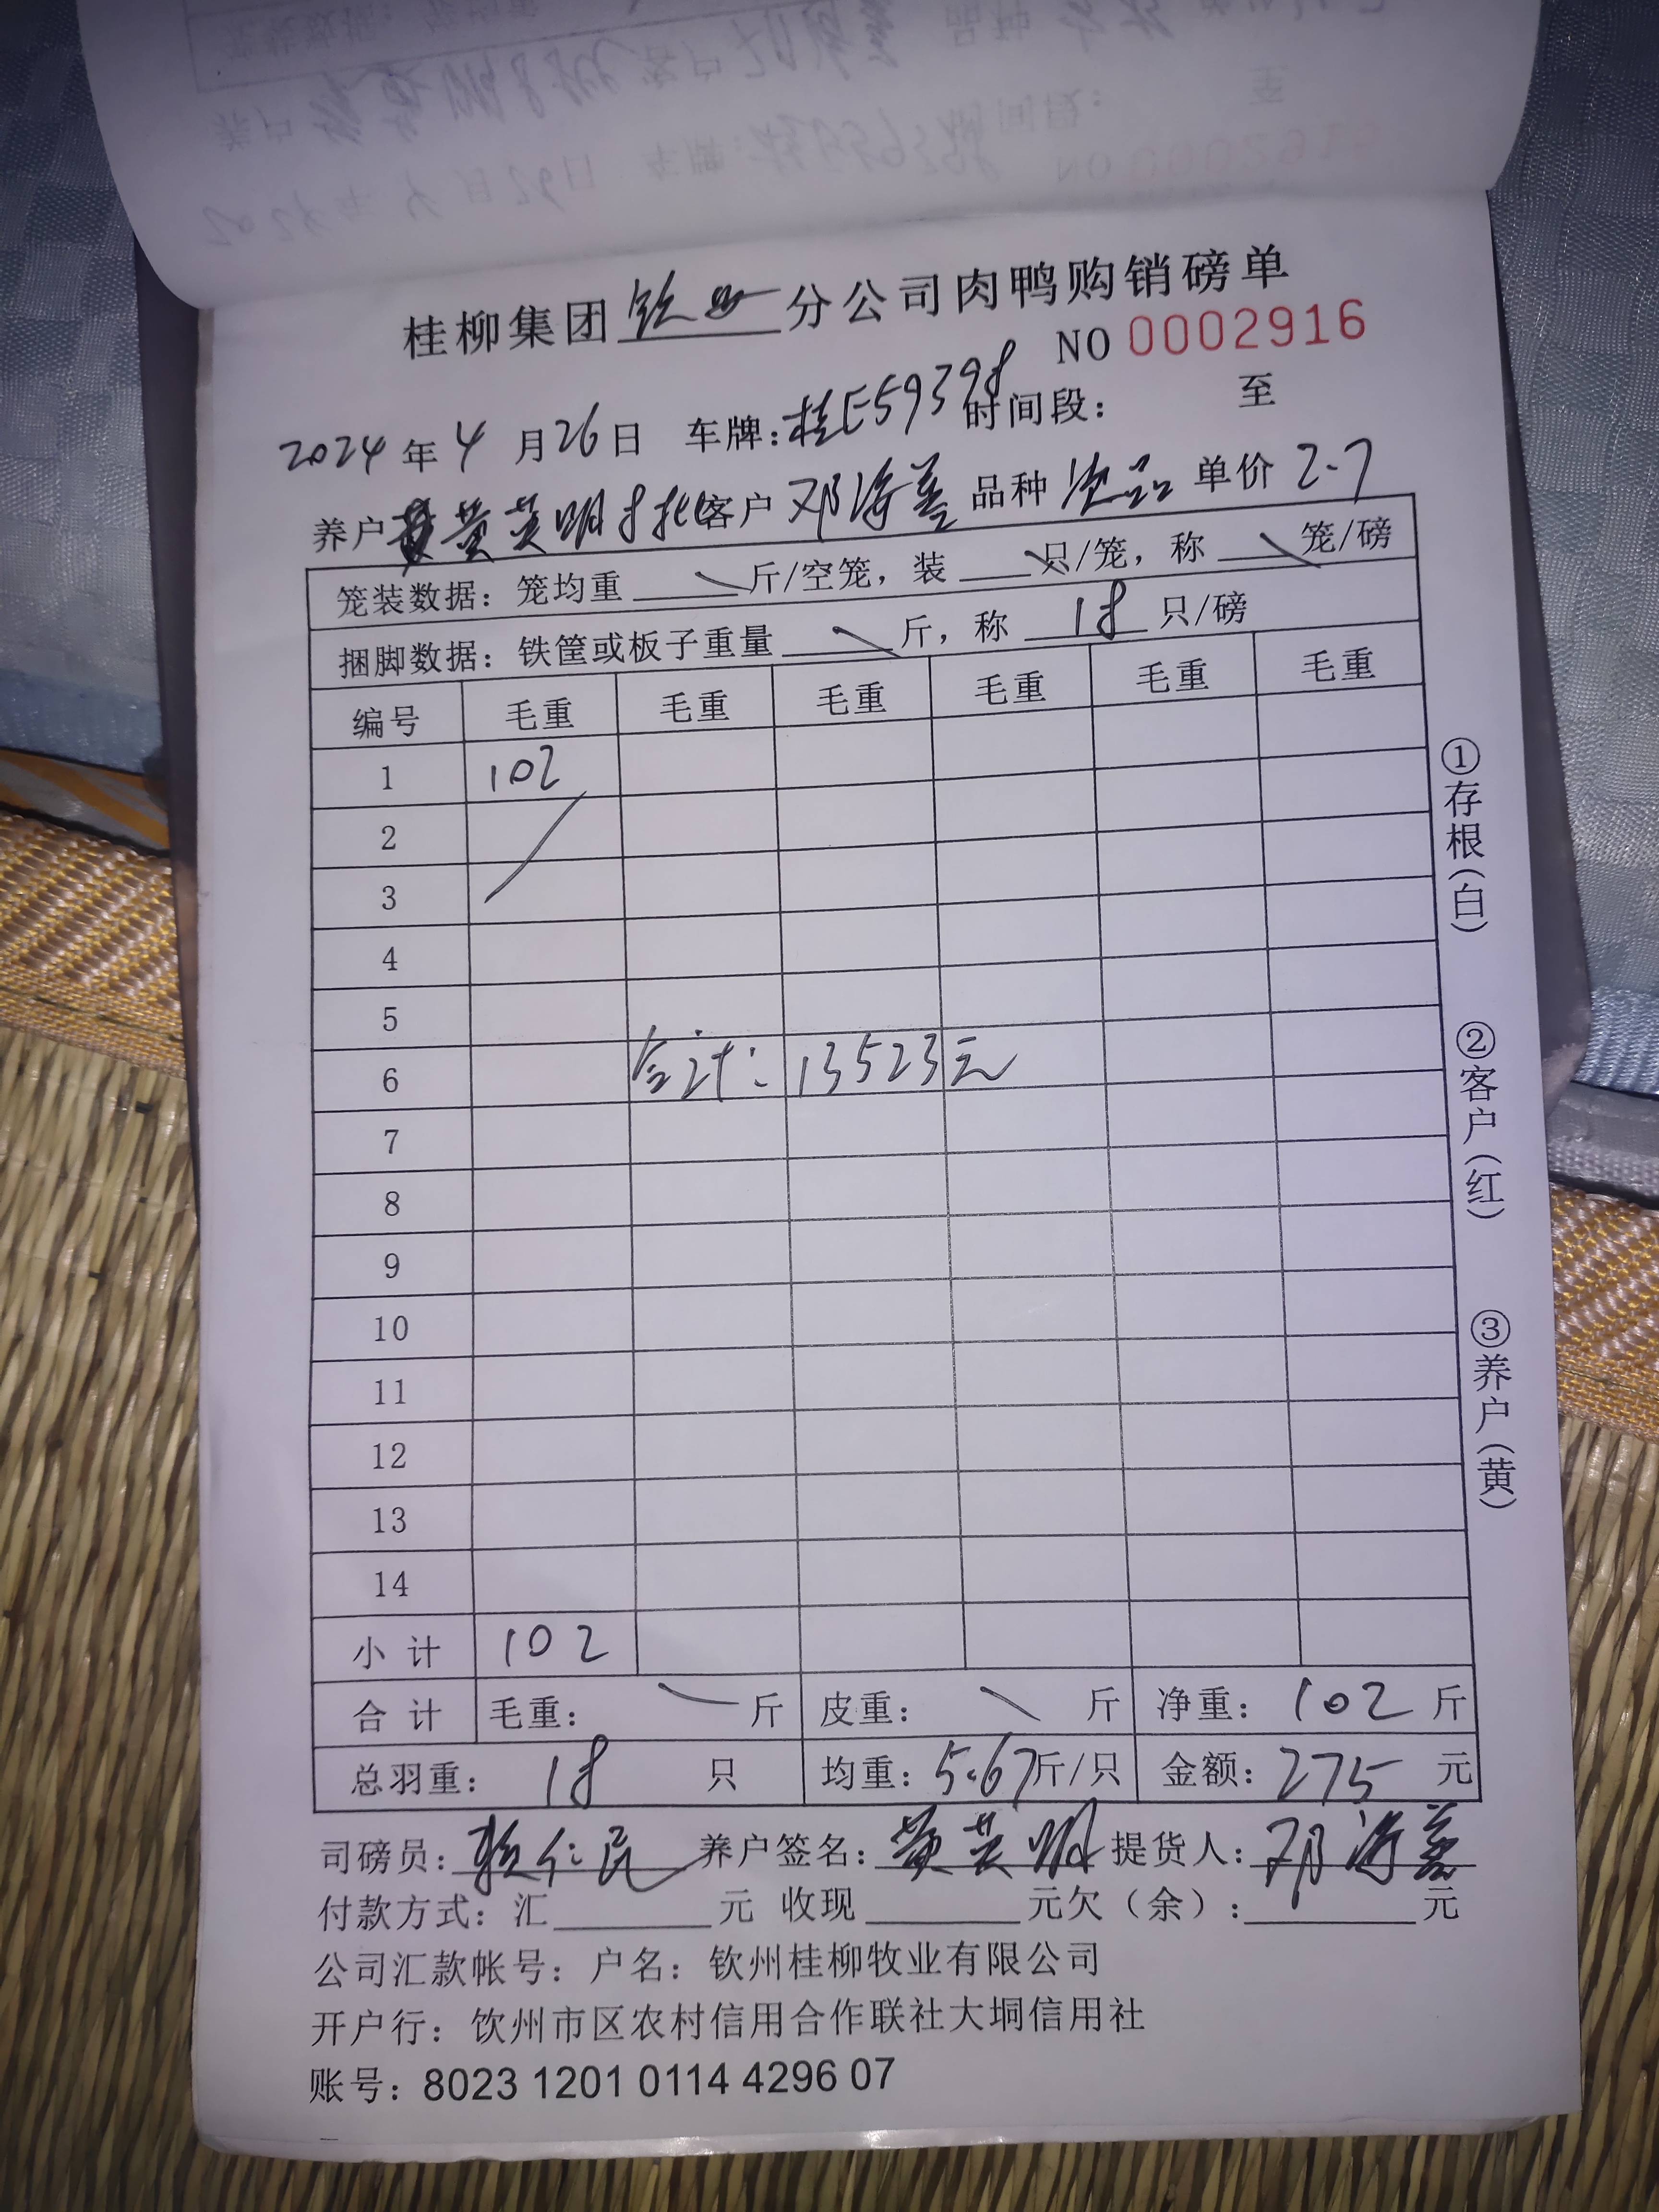 桂柳集团钦州分公司肉鸭购销磅单
NO 0002916
2024年4月26日 车牌:桂E59398 时间段: 至
养户 黄英明 客户 邓海 品种 次品 单价 2.7
笼装数据: 笼均重 斤/空笼, 装 只/笼, 称 笼/磅
捆脚数据: 铁筐或板子重量 斤, 称 18 只/磅
编号 毛重 毛重 毛重 毛重 毛重 毛重
1 102
2
3
4
5
6 合计: 13523元
7
8
9
10
11
12
13
14
小计 102
合计 毛重: 斤 皮重: 斤 净重: 102 斤
总羽重: 18 只 均重: 5.67斤/只 金额: 275 元
司磅员: 仁民 养户签名: 黄英明 提货人: 邓海
付款方式: 汇 元 收现 元欠(余): 元
公司汇款帐号: 户名: 钦州桂柳牧业有限公司
开户行: 钦州市区农村信用合作联社大垌信用社
账号: 8023 1201 0114 4296 07
①存根(白)
②客户(红)
③养户(黄)